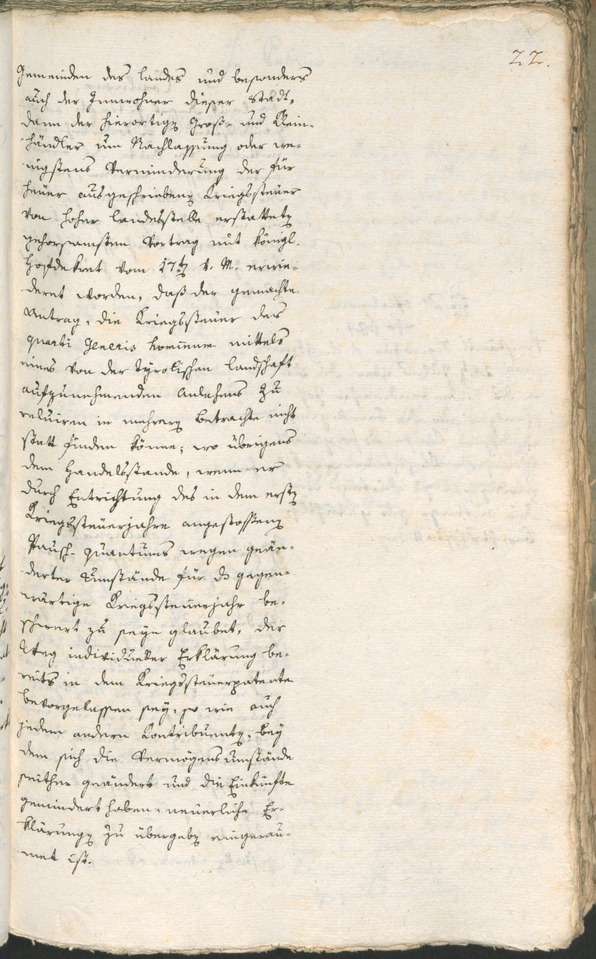 22.
Gemeinden des Landes und besonders
auch der Innwohner dieser Stadt,
dann der hierortigen Groß- und Klein-
händler um Nachlassung oder we-
nigstens Verminderung der für
heuer ausgeschriebenen Kriegssteuer
von hoher Landesstelle erstatteten
gehorsamsten Vortrag mit königl.
Hofdekret vom 17ten v. M. erwie-
deret worden, daß der gemachte
Antrag, die Kriegssteuer des
quarti Generis hominum mittels
eines von der tyrolischen Landschaft
aufzunehmenden Anlehens zu
reluiren in mehreren Betrachte nicht
statt finden könne; wo übrigens
dem Handelsstande, wenn er
durch Entrichtung des in dem ersten
Kriegssteuerjahre angestossenen
Pausch-quantums wegen geän-
derter Umstände für das gegen-
wärtige Kriegssteuerjahr be-
schwert zu seyn glaubet, der
Weg individueller Erklärung be-
reits in dem Kriegssteuerpatente
bevorgelassen sey, so wie auch
jedem andern Contribuenten, bey
dem sich die Vermögensumstände
seither geändert und die Einkünfte
gemindert haben, neuerliche Er-
klärungen zu übergeben eingerau-
met ist.